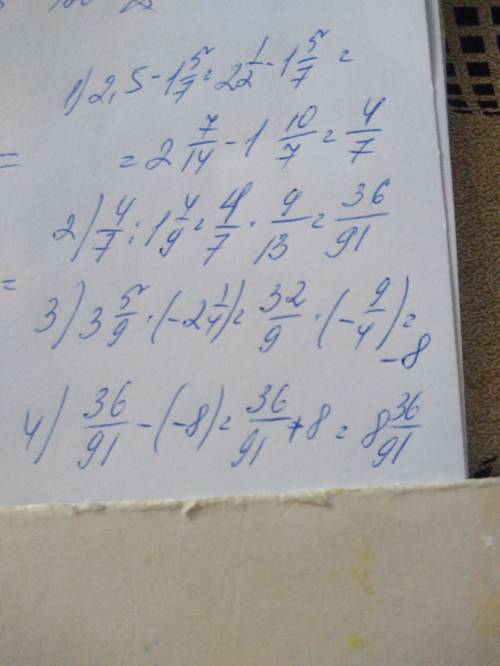 1) 2,5 - 1 5/7 = 2 1/2 - 1 5/7 =
= 2 7/14 - 1 10/7 = 4/7
2) 4/7 : 1 4/9 = 4/7 · 9/13 = 36/91
3) 3 5/9 · (-2 1/4) = 32/9 · (-9/4) = -8
4) 36/91 - (-8) = 36/91 + 8 = 8 36/91